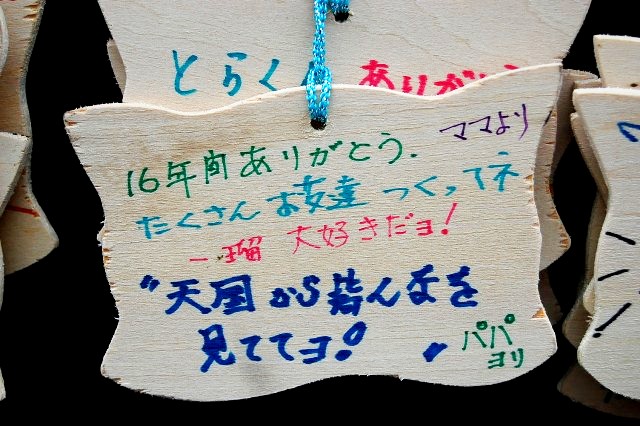 とらくん ありがとう
ママより
16年間ありがとう.
たくさんお友達つくってネ
一瑠 大好きだョ!
"天国から皆んなを
見ててヨ!
パパ
ヨリ